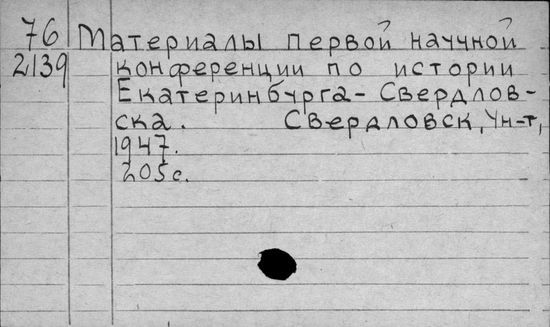 76 Материалы первой научной
2139 конференции по истории
Екатеринбурга-Свердлов-
ска. Свердловск, Ун-т,
1947.
205 с.